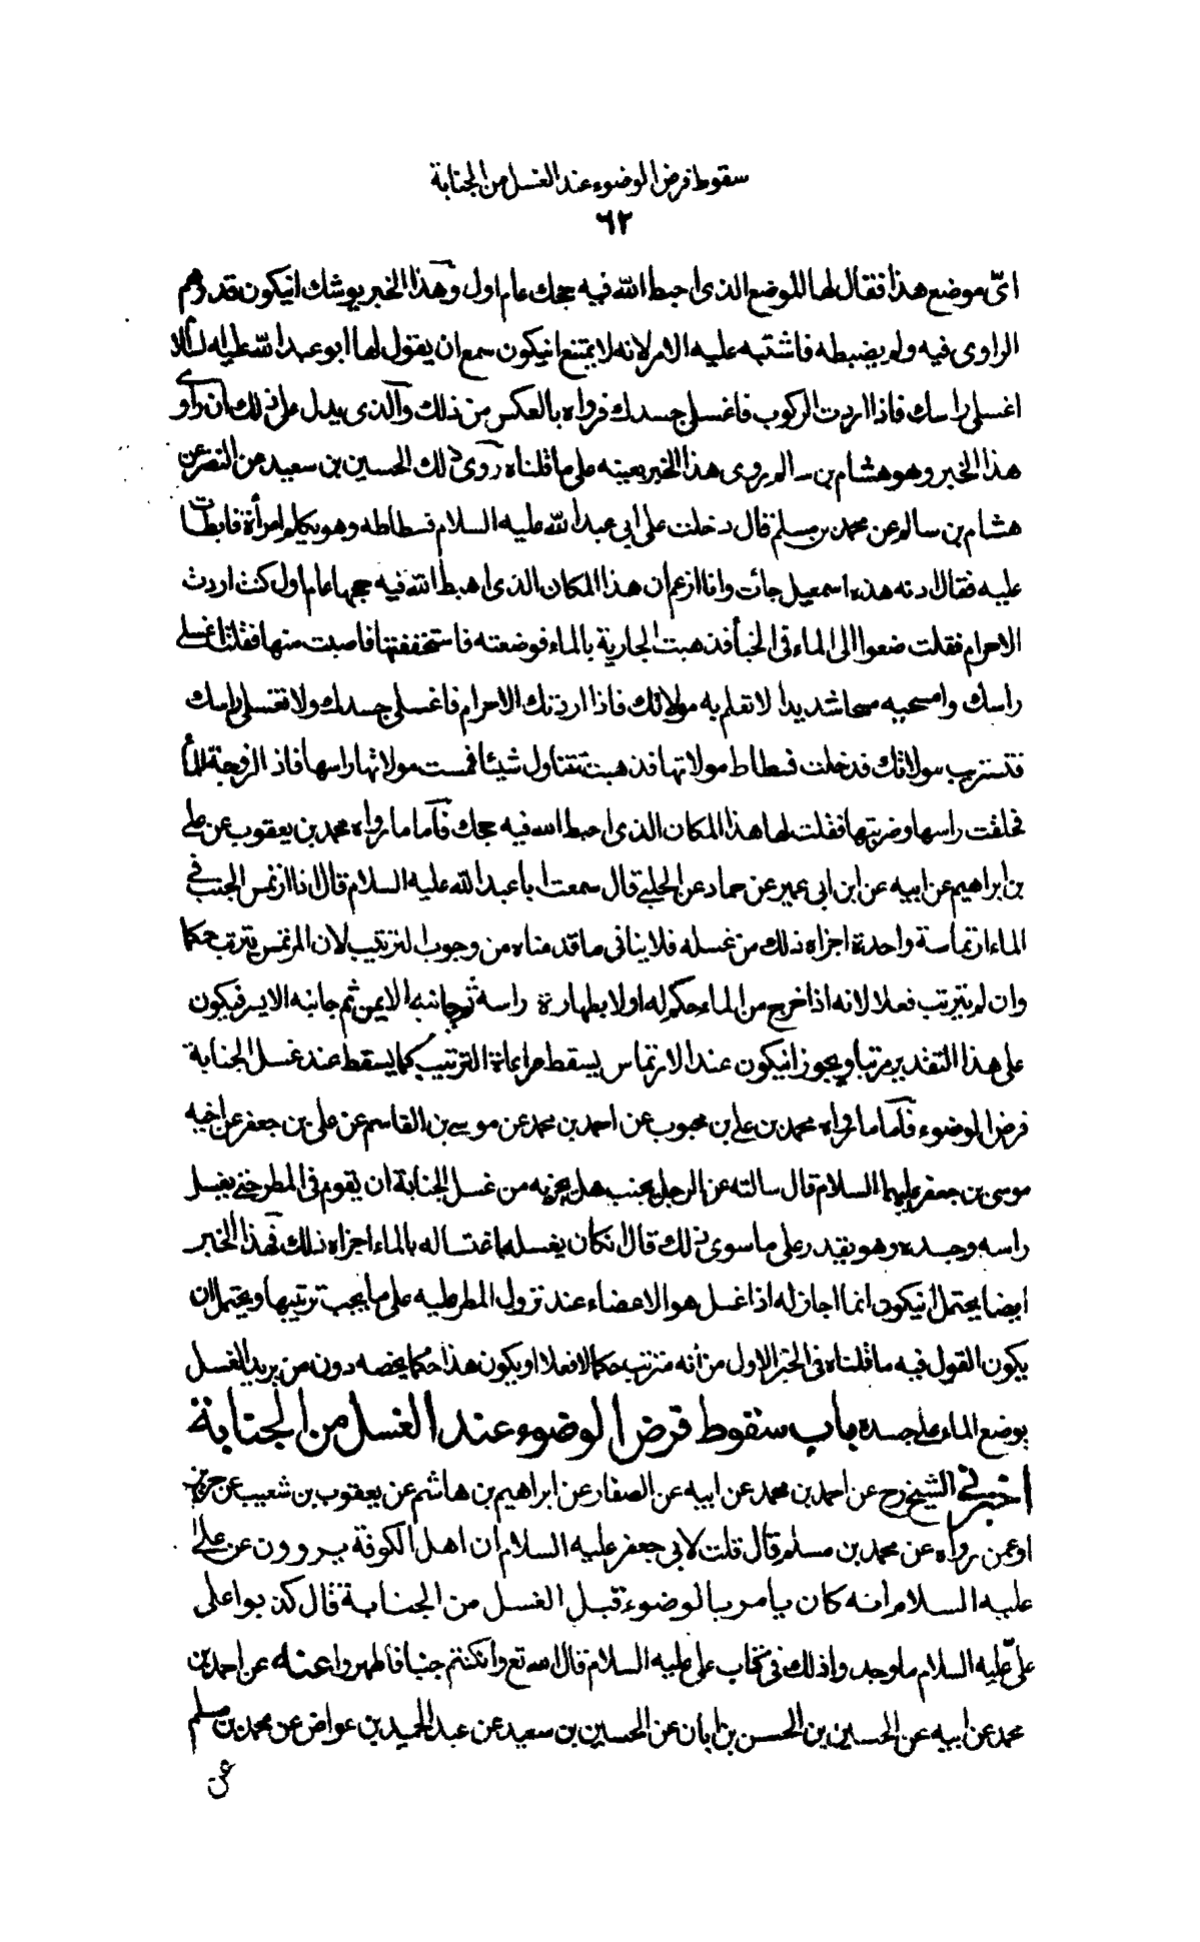 سقوط فرض الوضوء عند الغسل من الجنابة
٦٢
ائّ موضع هذا فقال لها الموضع الذى احبط الله فيه حجك عام اول وهذا الخبر يوشك انيكون قد وهم
الراوى فيه ولم يضبطه فاشتبه عليه الامر لانه لا يمتنع انيكون سمع ان يقول لها ابو عبد الله عليه السلام
اغسلى راسك فاذا اردت الركوب فاغسلى جسدك فرواه بالعكس من ذلك والذى يدل على ذلك ان راوى
هذا الخبر وهو هشام بن سالم يروى هذا الخبر بعينه على ما قلناه روى ذلك الحسين بن سعيد عن النضر عن
هشام بن سالم عن محمد بن مسلم قال دخلت على ابى عبد الله عليه السلام فسطاطه وهو يكلم امرأة فابطات
عليه فقال ادنه هذه ام سمعيل جائت وانا ازعم ان هذا المكان الذى احبط الله فيه حجها عام اول كنت اردت
الاحرام فقلت ضعوا الى الماء فى الخبأ فذهبت الجارية بالماء فوضعته فاستخففتها فاصبت منها فقلت اغسلى
راسك وامسحيه مسحا شديدا لا تعلم به مولاتك فاذا اردت الاحرام فاغسلى جسدك ولا تغسلى راسك
فتستريب مولاتك فدخلت فسطاط مولاتها فذهبت تتناول شيئا فمست مولاتها راسها فاذا لزوجة الماء
فحلقت راسها وضربتها فقلت لها هذا المكان الذى احبط الله فيه حجك فاما ما رواه محمد بن يعقوب عن على
بن ابراهيم عن ابيه عن ابن ابى عمير عن حماد عن الحلبى قال سمعت ابا عبد الله عليه السلام قال اذا ارتمس الجنب فى
الماء ارتماسة واحدة اجزاه ذلك من غسله فلا ينافى ما قدمناه من وجوب الترتيب لان المرتمس يترتب حكما
وان لم يترتب فعلا لانه اذا خرج من الماء حكم له اولا بطهارة راسه ثم جانبه الايمن ثم جانبه الايسر فيكون
على هذا التقدير مرتبا ويجوز انيكون عند الارتماس يسقط مراعاة الترتيب كما يسقط عند غسل الجنابة
فرض الوضوء فاما ما رواه محمد بن على بن محبوب عن احمد بن محمد عن موسى بن القاسم عن على بن جعفر عن اخيه
موسى بن جعفر عليهما السلام قال سالته عن الرجل يجنب هل يجزيه من غسل الجنابة ان يقوم فى المطر حتى يغسل
راسه وجسده وهو يقدر على ما سوى ذلك قال انكان يغسله اغتساله بالماء اجزاه ذلك فهذا الخبر
ايضا يحتمل انيكون انما اجاز له اذا غسل هو الاعضاء عند نزول المطر عليه على ما يجب ترتيبها ويحتمل ان
يكون القول فيه ما قلناه فى الخبر الاول من انه مترتب حكما لا فعلا او يكون هذا حكما يخصه دون من يريد الغسل
بوضع الماء على جسده باب سقوط فرض الوضوء عند الغسل من الجنابة
اخبرنى الشيخ رح عن احمد بن محمد عن ابيه عن الصفار عن ابراهيم بن هاشم عن يعقوب بن شعيب عن حريز
او عمن رواه عن محمد بن مسلم قال قلت لابى جعفر عليه السلام ان اهل الكوفة يروون عن على
عليه السلام انه كان يامر بالوضوء قبل الغسل من الجنابة قال كذبوا على
علىّ عليه السلام ما وجدوا ذلك فى كتاب على عليه السلام قال الله تع وانكنتم جنبا فاطهروا عنه عن احمد بن
محمد عن ابيه عن الحسين بن الحسن بن ابان عن الحسين بن سعيد عن عبد الحميد بن عواض عن محمد بن مسلم
عن